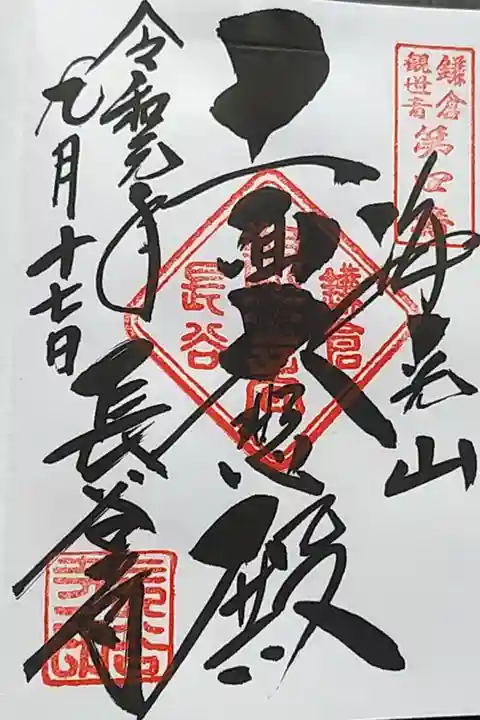 鎌倉
観世音
第四番
海光山
十一面大悲殿
鎌倉
長谷
長谷寺
令和元年
九月十七日